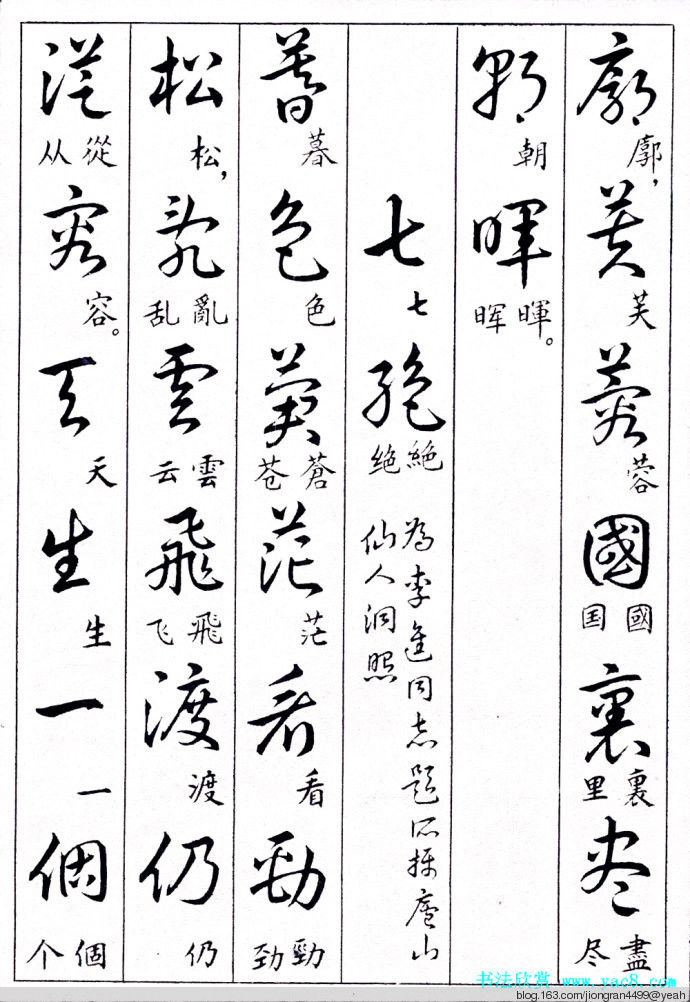 廓芙蓉國裏盡
廓，芙蓉國国裏里盡尽
朝暉
朝暉晖。
七絶
七絶绝
為李進同志題所攝廬山
仙人洞照
暮色蒼茫看勁
暮色蒼苍茫看勁劲
松亂雲飛渡仍
松，亂乱雲云飛飞渡仍
從容天生一個
從从容。天生一個个
书法欣赏 www.yac8.com
blog.163.com/jiongran4499@yeah